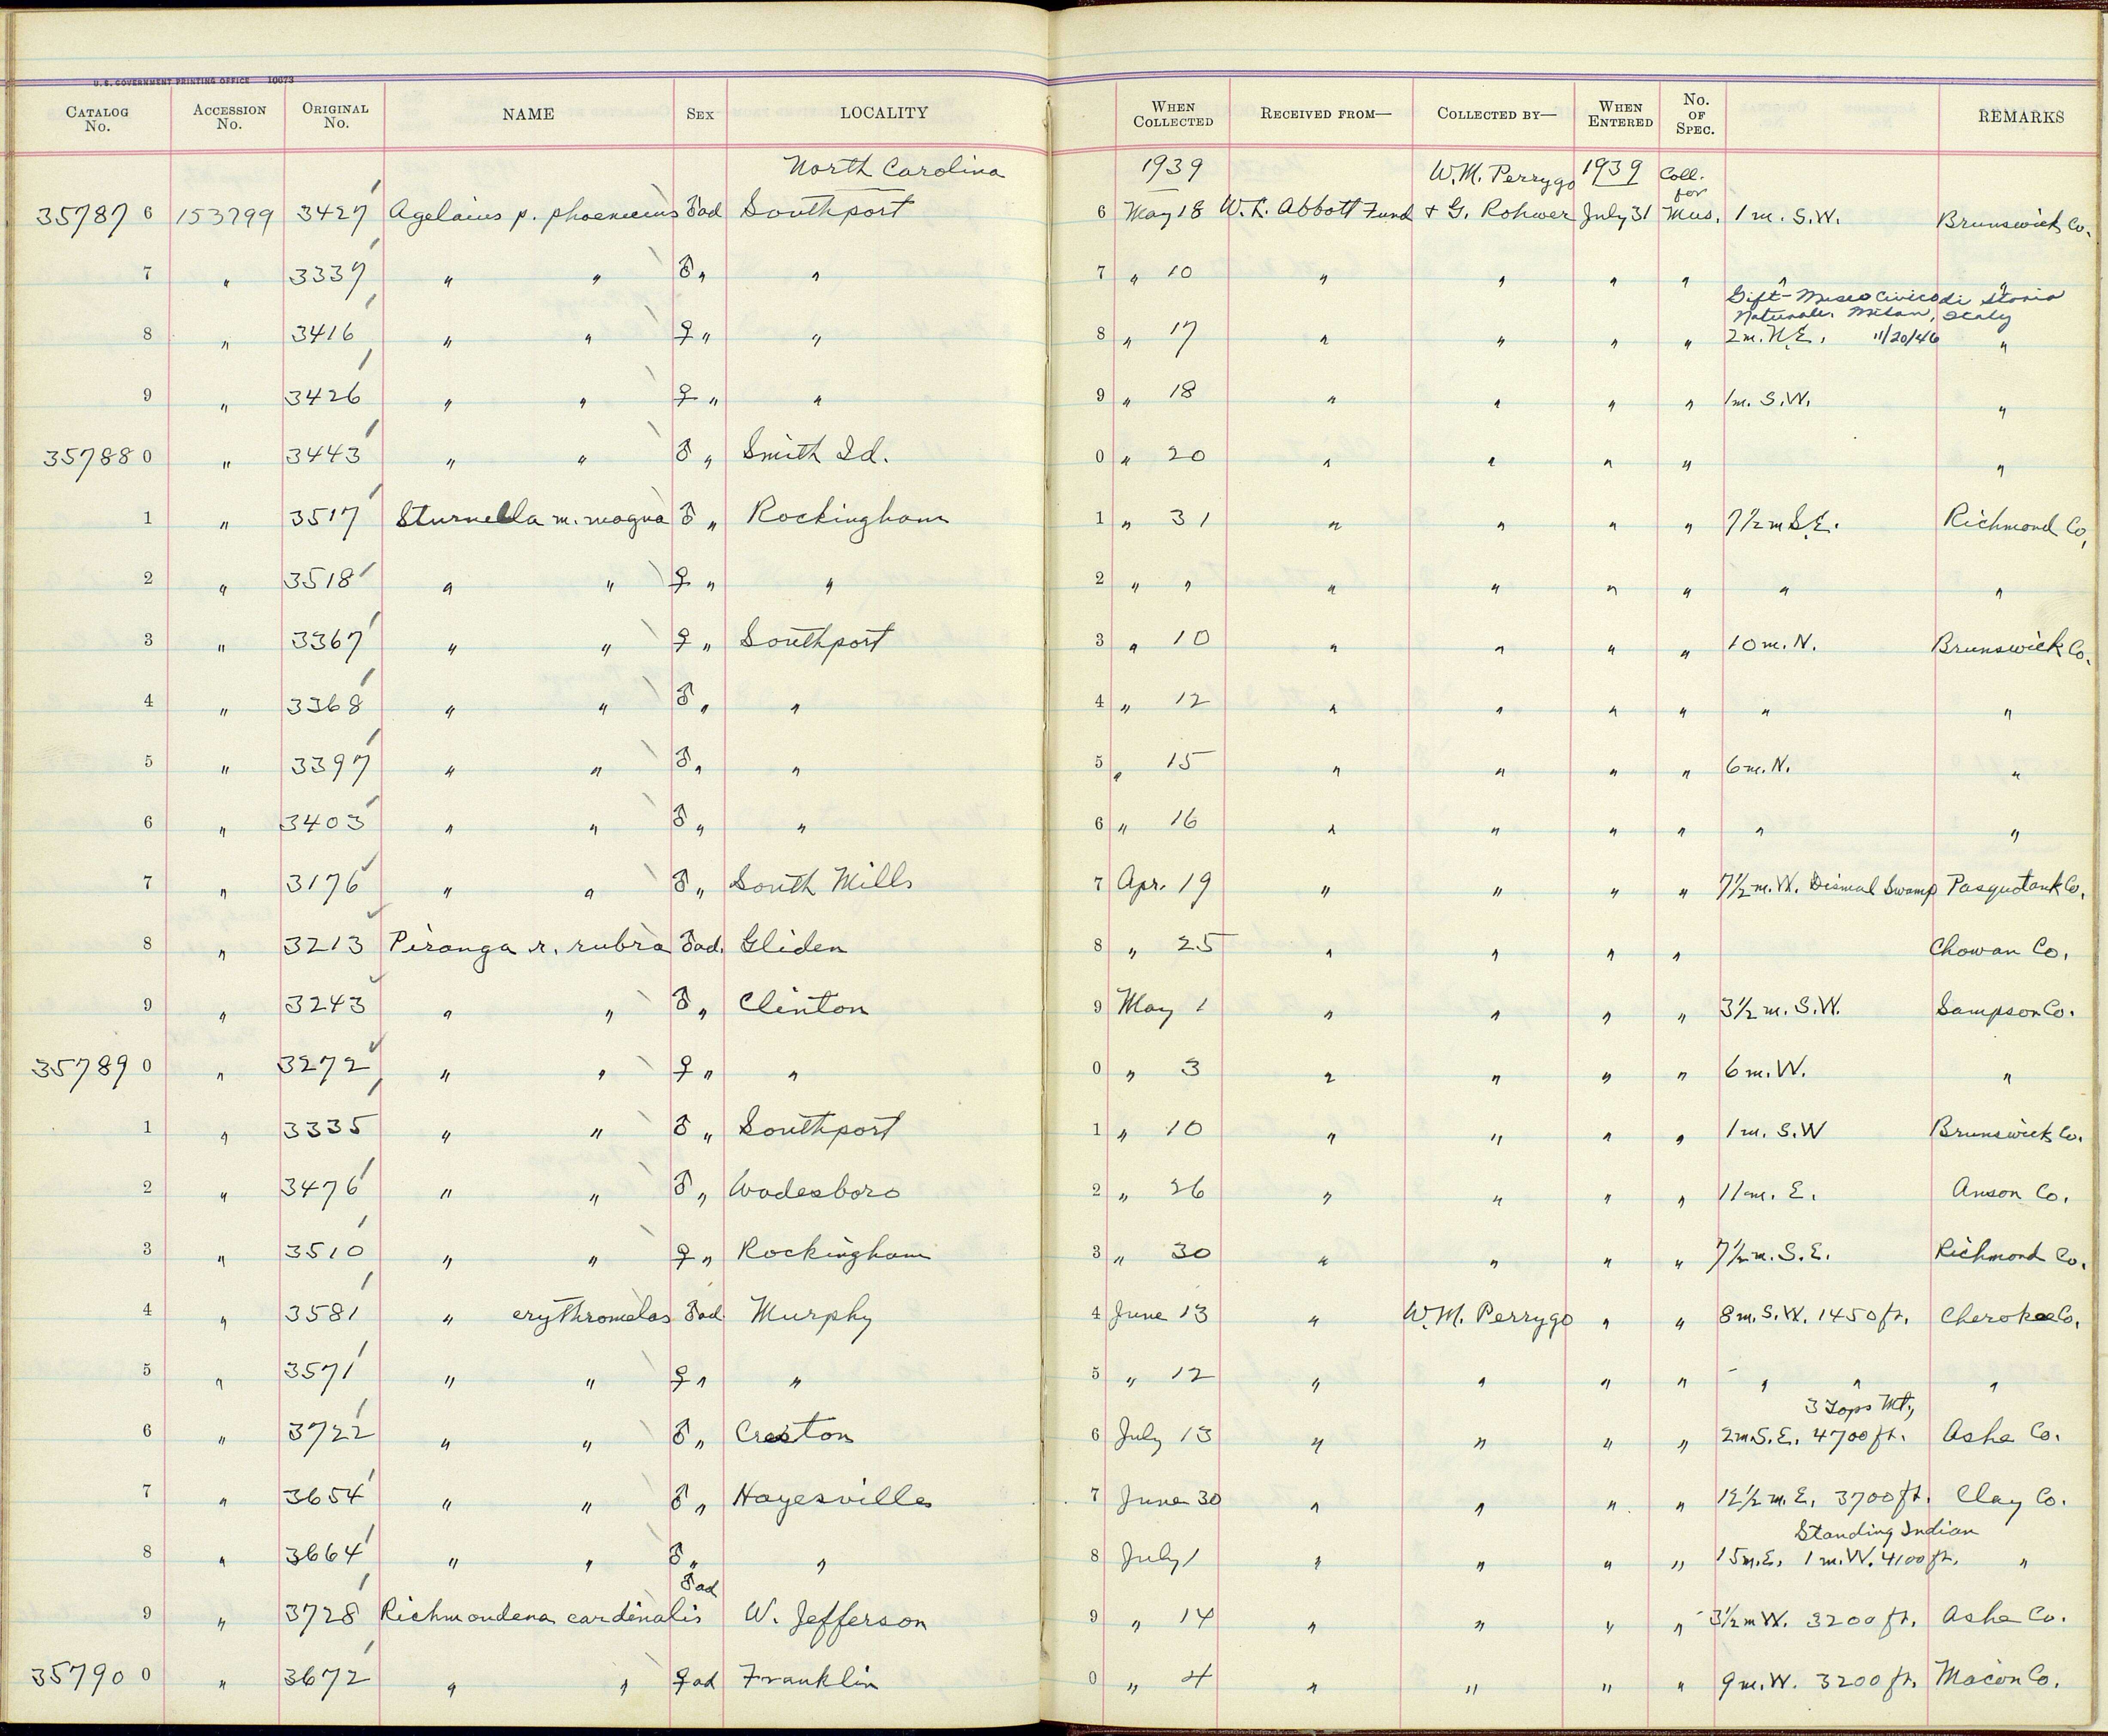 U.S. GOVERNMENT PRINTING OFFICE 10673
CATALOG No. ACCESSION No. ORIGINAL No. NAME SEX LOCALITY WHEN COLLECTED RECEIVED FROM— COLLECTED BY— WHEN ENTERED No. OF SPEC. REMARKS
North Carolina 1939 W.M. Perrygo 1939 Coll. for
35787 6 153799 3427 Agelaius p. phoeniceus ♂ad Southport 6 May 18 W.L. Abbott Fund + G. Rohwer July 31 Mus. 1 m. S.W. Brunswick Co.
7 " 3337 " " ♂ " " 7 " 10 " " " " " "
Gift-Museo Civico di Storia
Naturale. Milan, Italy
8 " 3416 " " ♀ " " 8 " 17 " " " " 2 m. N.E. 11/20/46 "
9 " 3426 " " ♀ " " 9 " 18 " " " " 1 m. S.W. "
35788 0 " 3443 " " ♂ " Smith Id. 0 " 20 " " " " "
1 " 3517 Sturnella m. magna ♂ " Rockingham 1 " 31 " " " " 7 1/2 m S.E. Richmond Co.
2 " 3518 " " ♀ " " 2 " " " " " " " "
3 " 3367 " " ♀ " Southport 3 " 10 " " " " 10 m. N. Brunswick Co.
4 " 3368 " " ♂ " " 4 " 12 " " " " " "
5 " 3397 " " ♂ " " 5 " 15 " " " " 6 m. N. "
6 " 3403 " " ♂ " " 6 " 16 " " " " " "
7 " 3176 " " ♂ " South Mills 7 Apr. 19 " " " " 7 1/2 m. W. Dismal Swamp Pasquotank Co.
8 " 3213 Piranga r. rubra ♂ad. Gliden 8 " 25 " " " " Chowan Co.
9 " 3243 " " ♂ " Clinton 9 May 1 " " " " 3 1/2 m. S.W. Sampson Co.
35789 0 " 3272 " " ♀ " " 0 " 3 " " " " 6 m. W. "
1 " 3335 " " ♂ " Southport 1 " 10 " " " " 1 m. S.W Brunswick Co.
2 " 3476 " " ♂ " Wadesboro 2 " 26 " " " " 11 m. E. Anson Co.
3 " 3510 " " ♀ " Rockingham 3 " 30 " " " " 7 1/2 m. S.E. Richmond Co.
4 " 3581 " erythromelas ♂ad Murphy 4 June 13 " W.M. Perrygo " " 8 m. S.W. 1450 ft. Cherokee Co.
5 " 3571 " " ♀ " " 5 " 12 " " " " " " "
3 Tops Mt.,
6 " 3722 " " ♂ " Creston 6 July 13 " " " " 2 m. S.E. 4700 ft. Ashe Co.
7 " 3654 " " ♂ " Hayesville 7 June 30 " " " " 12 1/2 m. E. 3700 ft. Clay Co.
Standing Indian
8 " 3664 " " ♂ " " 8 July 1 " " " " 15 m. E. 1 m. W. 4100 ft. "
9 " 3728 Richmondena cardinalis ♂ad W. Jefferson 9 " 14 " " " " 3 1/2 m W. 3200 ft. Ashe Co.
35790 0 " 3672 " " ♀ad Franklin 0 " 4 " " " " 9 m. W. 3200 ft. Macon Co.